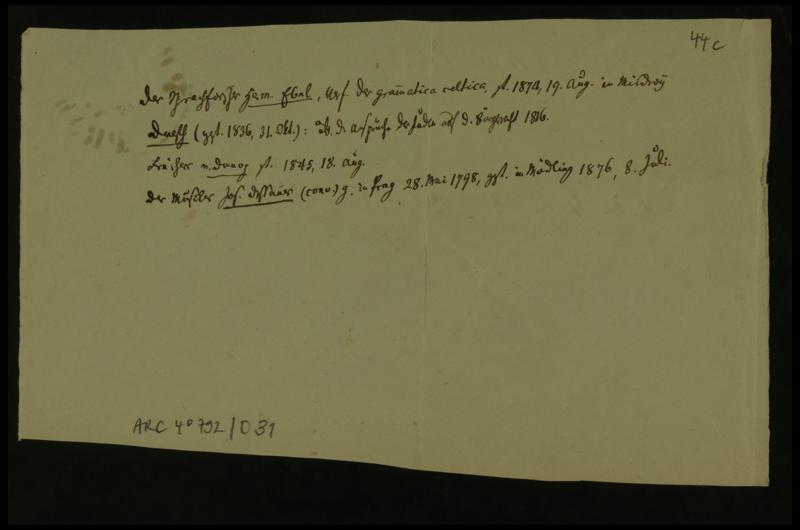 44c
Der Sprachforscher Herm. Ebel, Verf. der grammatica celtica, st. 1874, 19. Aug. in Misdroy
(gest. 1836, 31. Okt.): üb. d. Ansprüche der Juden auf d. 1816.
Freiherr v. Donop st. 1845, 18. Aug.
Der Musiker Jos. Dessauer (conv.) g. in Prag 28. Mai 1798, gest. in Mödling 1876, 8. Juli.
ARC 4° 792/D31